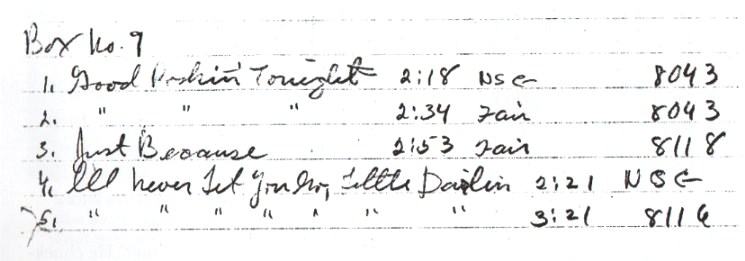 Box No. 9
1. Good Rockin Tonight 2:18 NSG 8043
2. " " " 2:34 Fair 8043
3. Just Because 2:53 Fair 8118
4. I'll never Let You Go, Little Darlin 2:21 NSG
5. " " " " " " " 3:21 8116